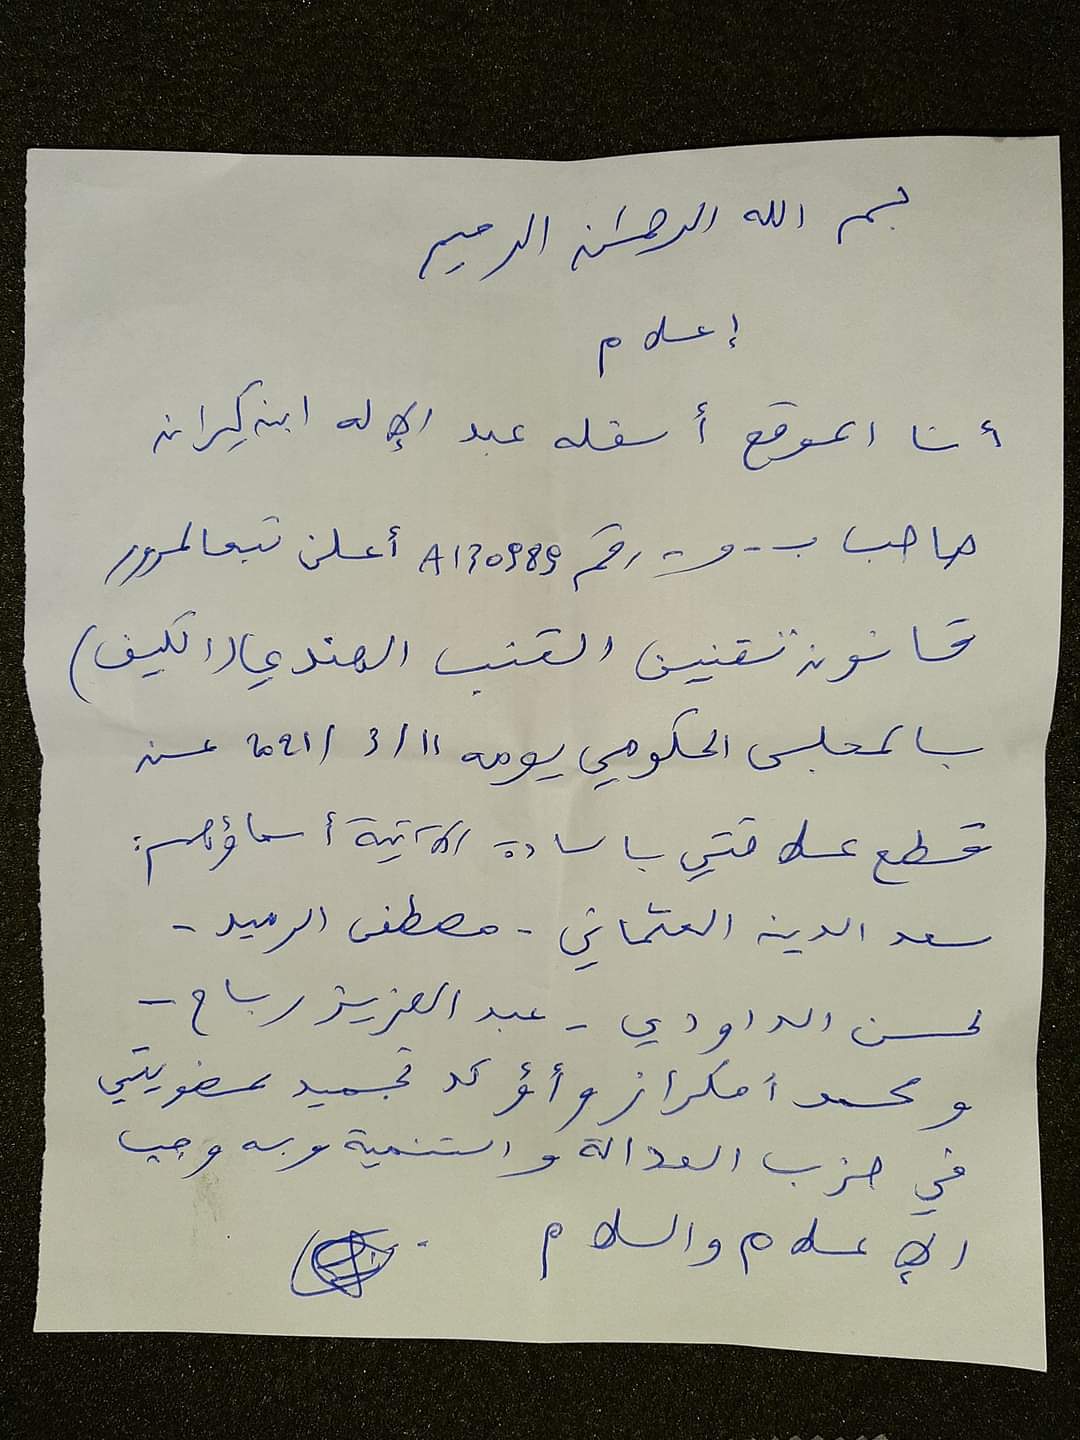 بسم الله الرحمٰن الرحيم
إعلام
أنا الموقع أسفله عبد الإله ابن كيران
صاحب ب-و- رقم A130989 أعلن تبعا لمرور
قانون تقنين القنب الهندي (الكيف)
بالمجلس الحكومي يومه 11/3/2021 عن
قطع علاقتي بالسادة الآتية أسماؤهم:
سعد الدين العثماني - مصطفى الرميد -
لحسن الداودي - عبد العزيز رباح -
ومحمد أمكراز وأؤكد تجميد عضويتي
في حزب العدالة والتنمية وبه وجب
الإعلام والسلام.